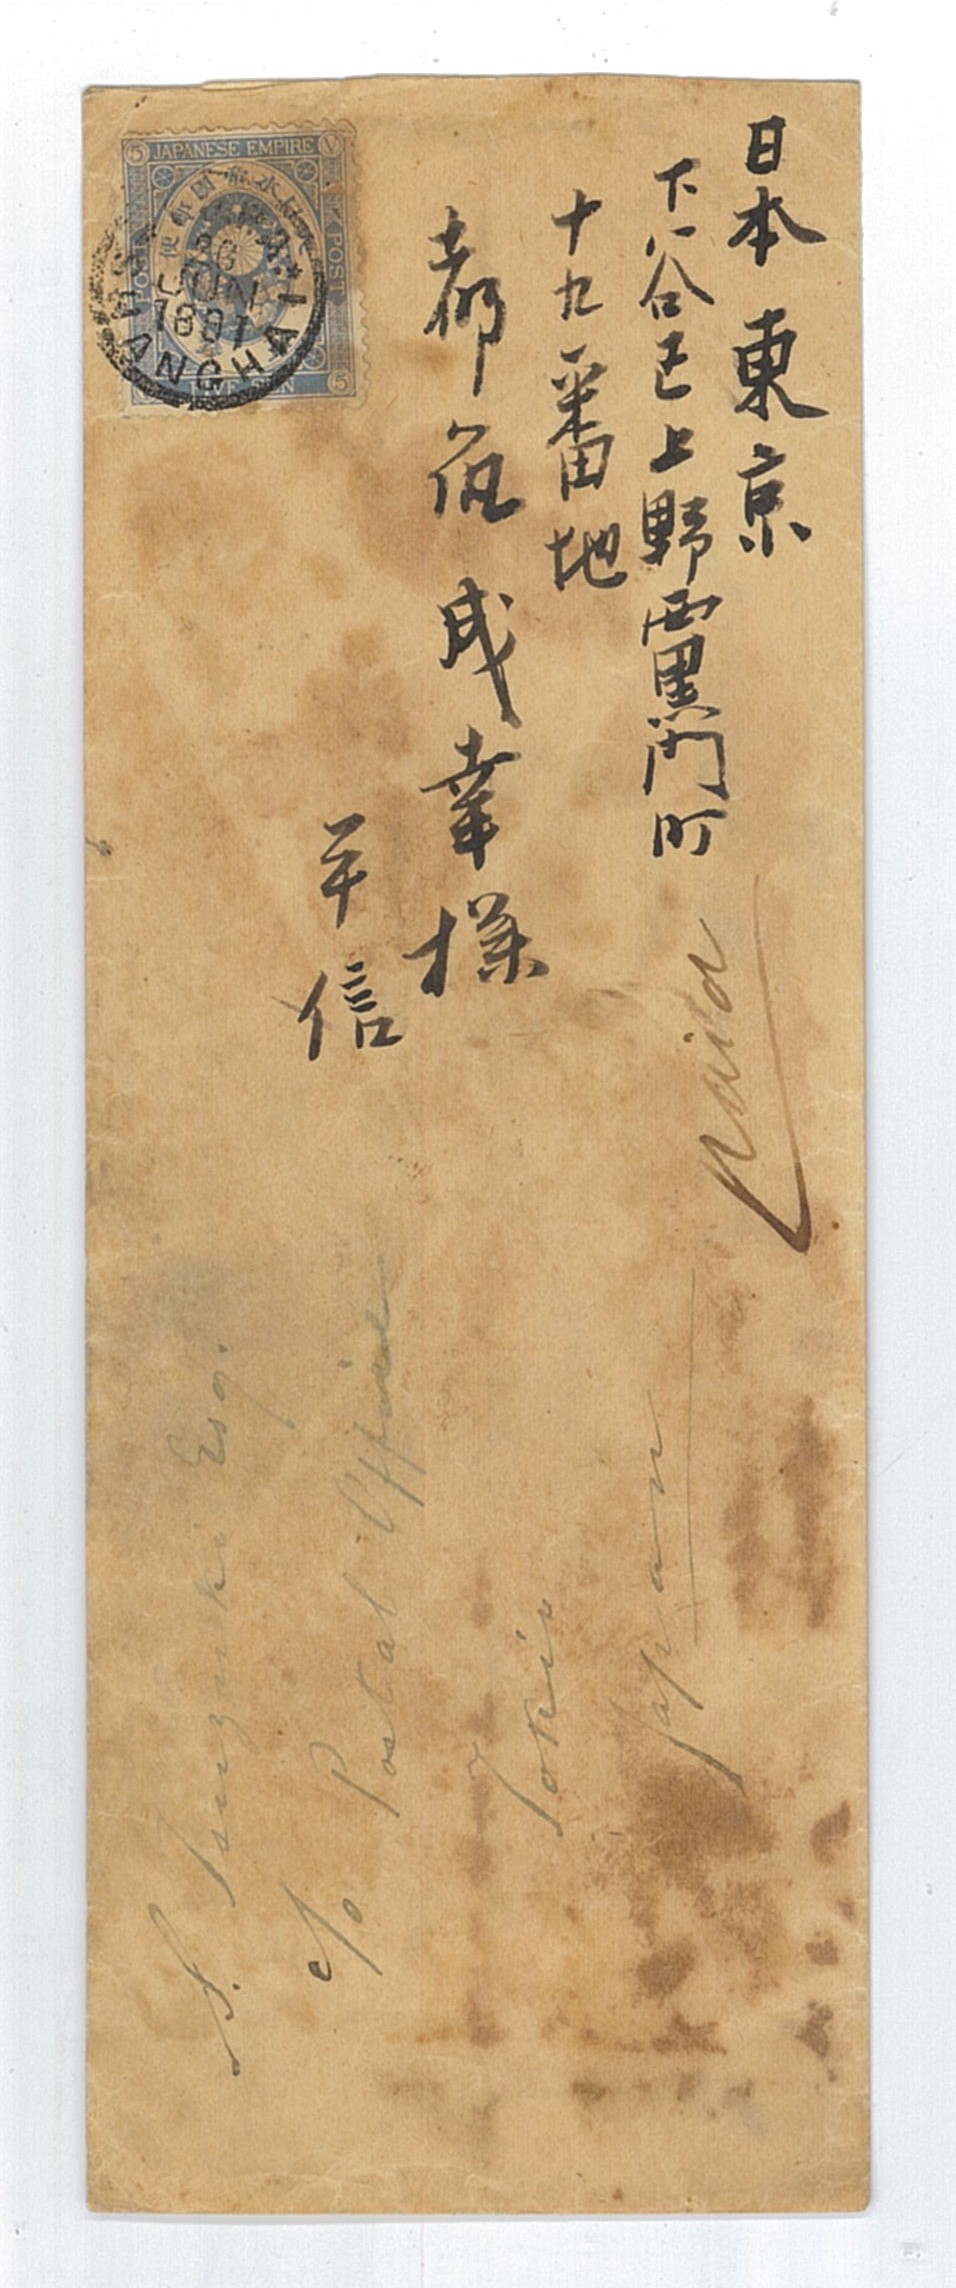 日本 東京
下谷区上野西黒門町
十九番地
都筑成幸様
平信
JAPANESE EMPIRE
5 V
大日本帝国郵便
FIVE SEN
5
SHANGHAI
JUN
1891
Paid
S. Tsuzuki Esq.
c/o Postal Office
Tokio
Japan